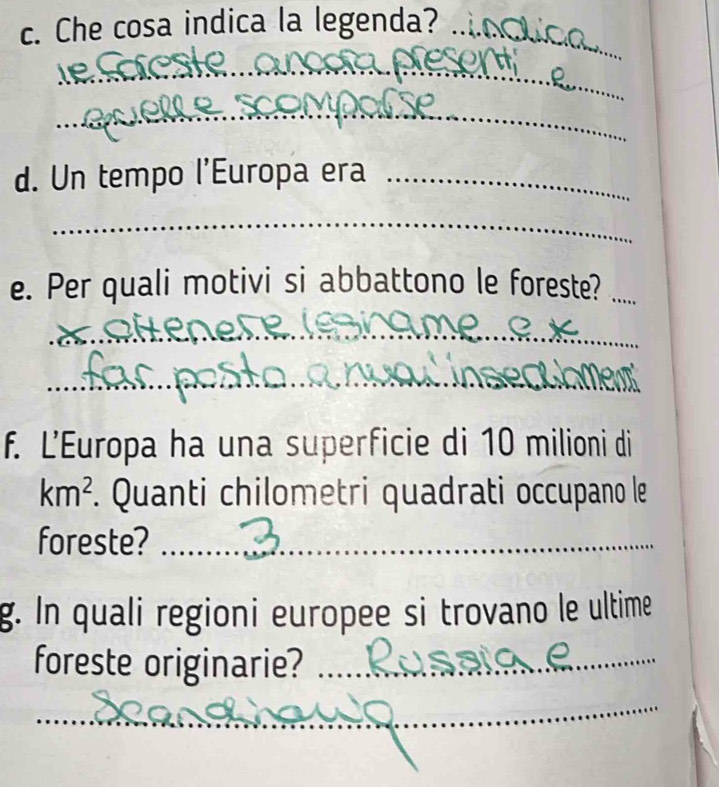 c. Che cosa indica la legenda? ..indica
le foreste ancora presenti e
quelle scomparse
d. Un tempo l'Europa era
e. Per quali motivi si abbattono le foreste?
x ottenere legname e x
far posto a nuovi insediamenti
f. L'Europa ha una superficie di 10 milioni di
km². Quanti chilometri quadrati occupano le
foreste? 3
g. In quali regioni europee si trovano le ultime
foreste originarie? Russia e
Scandinavia